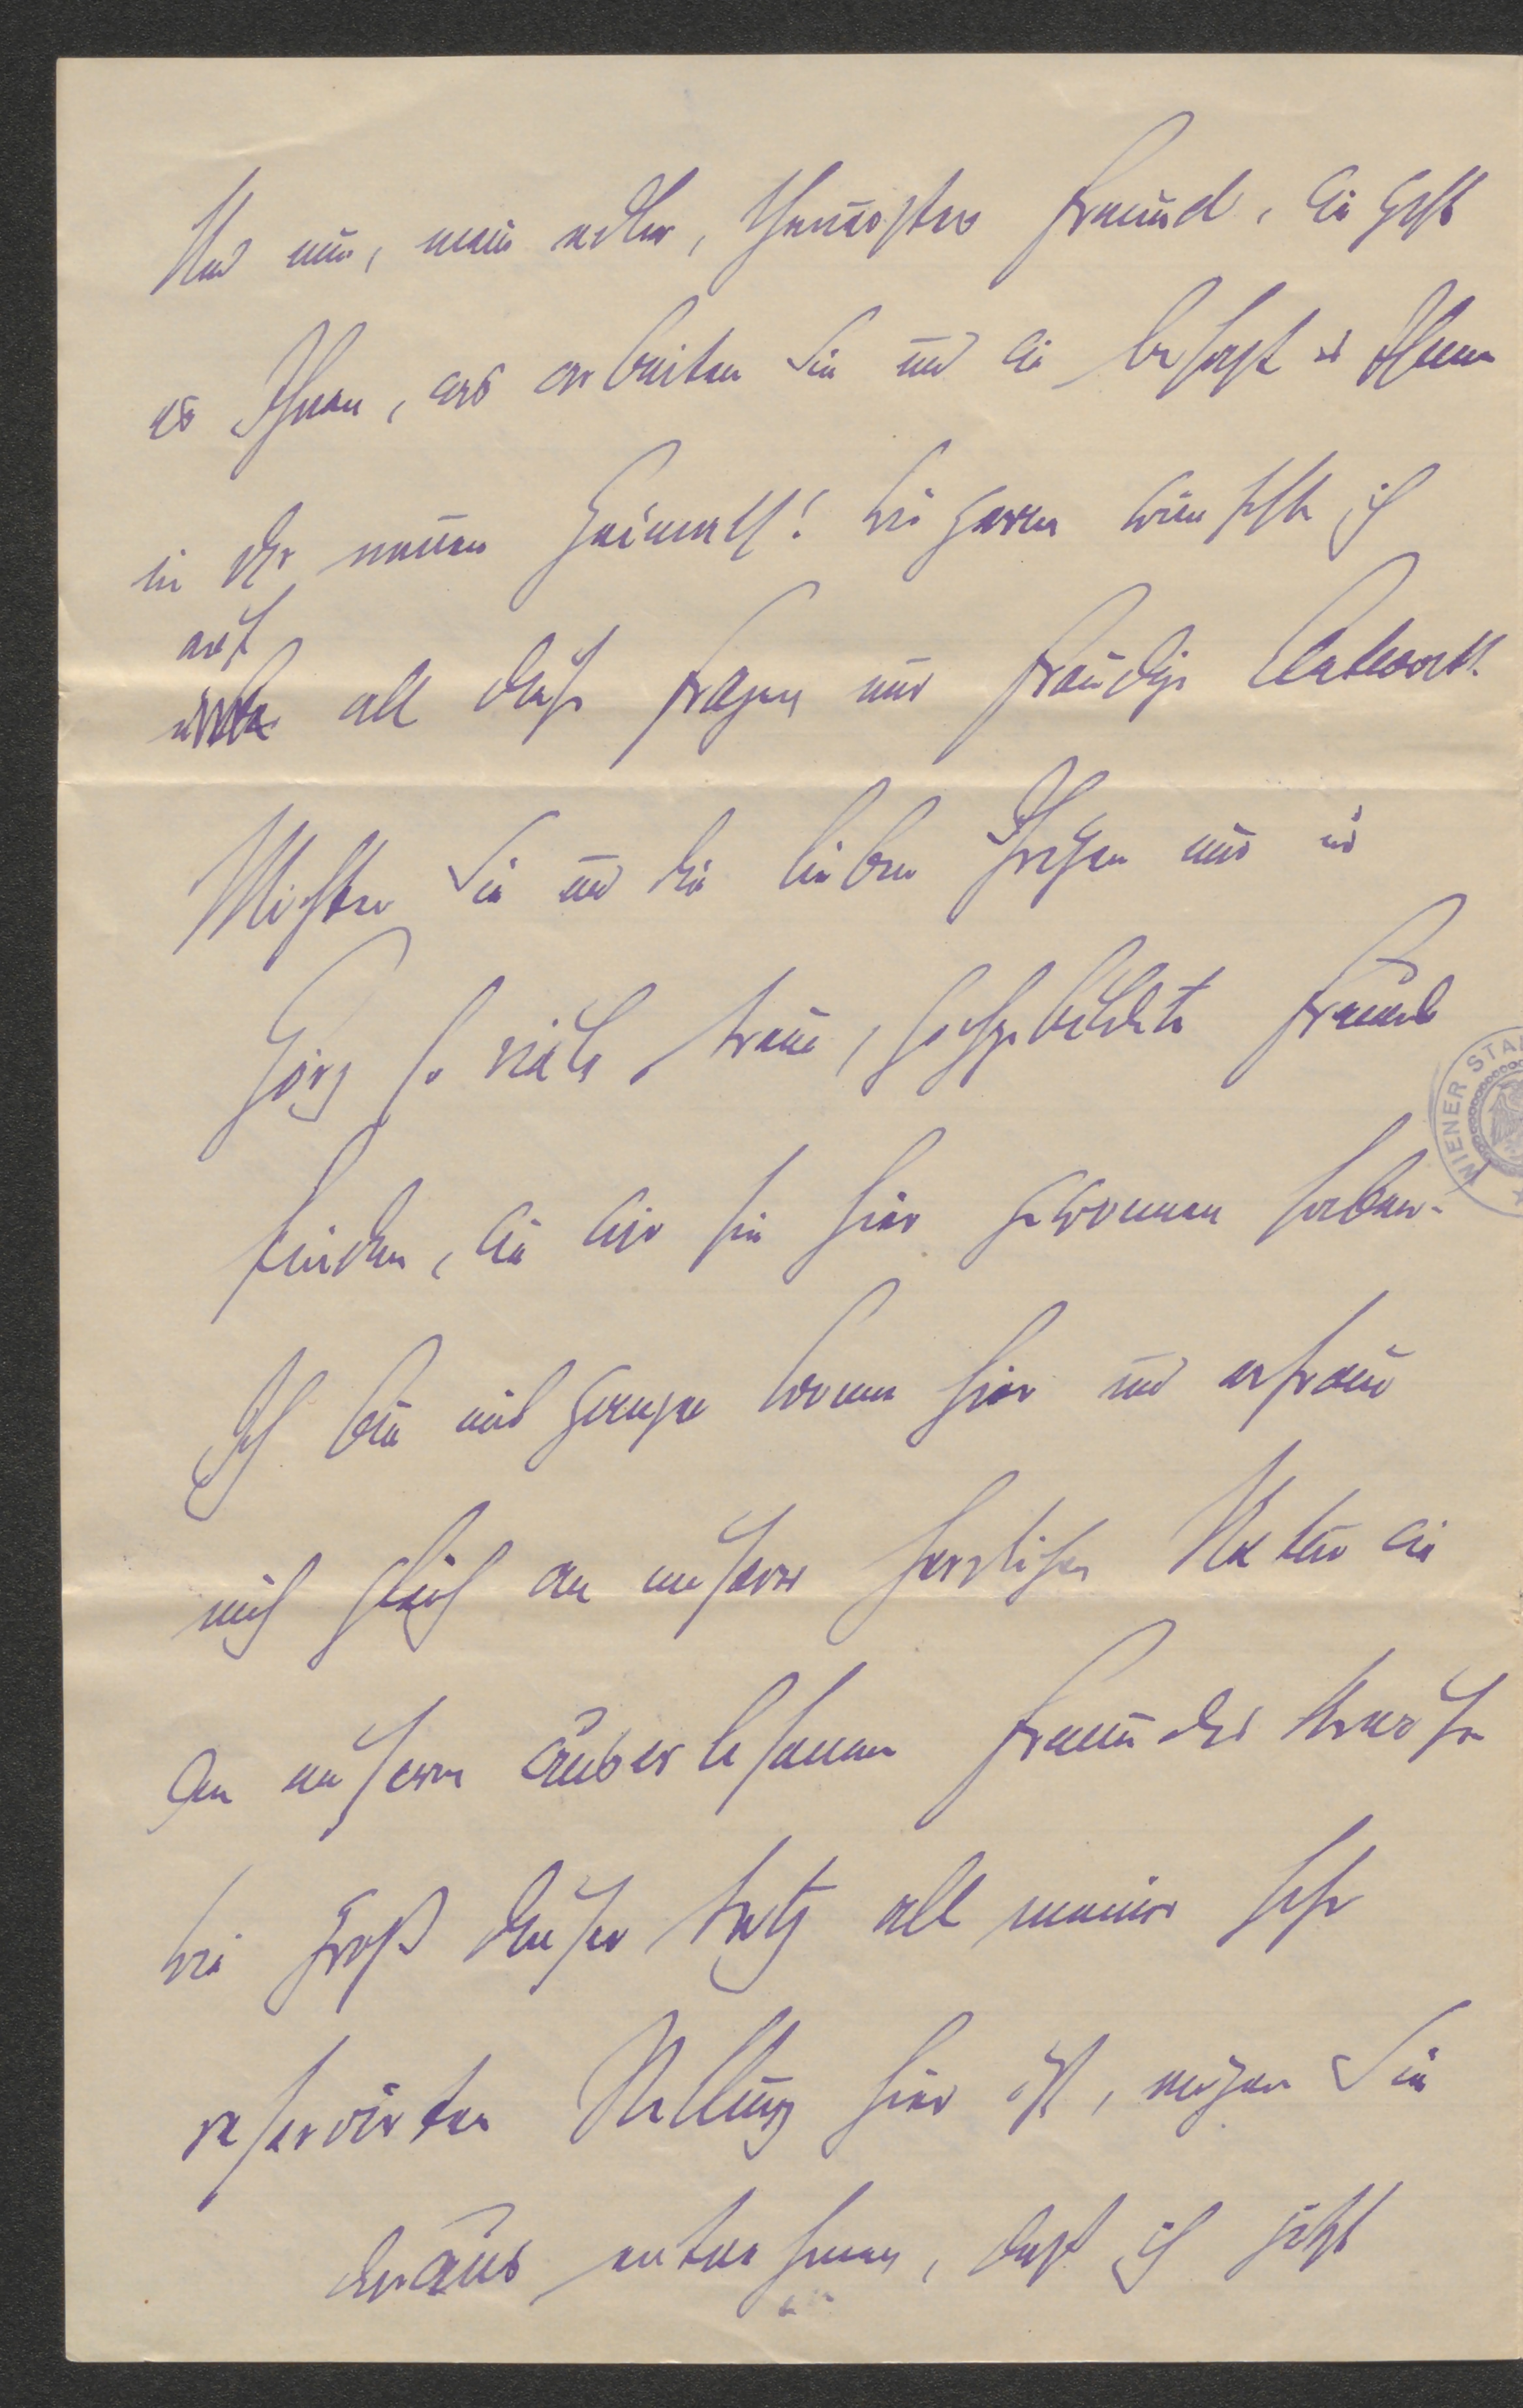 Und nun, mein edler, theuerster Freund, wie geht
es Ihnen, was arbeiten Sie und wie behagt es Ihnen
in der neuen Heimath! Wie gerne wünschte ich
auf
all diese Fragen nur freudige Antwort.
Möchten Sie und die lieben Ihrigen nur in
Görz so viele treue, hochgebildete Freunde
finden, wie wir sie hier gewonnen haben.
Ich bin mit ganzer Wonne hier und erfreue
mich gleich an unserer herrlichen Natur wie
an unserem auserlesenen Freundeskreise
Wie groß dieser trotz all meiner sehr
reservirten Stellung hier ist, mögen Sie
daraus entnehmen, daß ich jetzt
WIENER STA